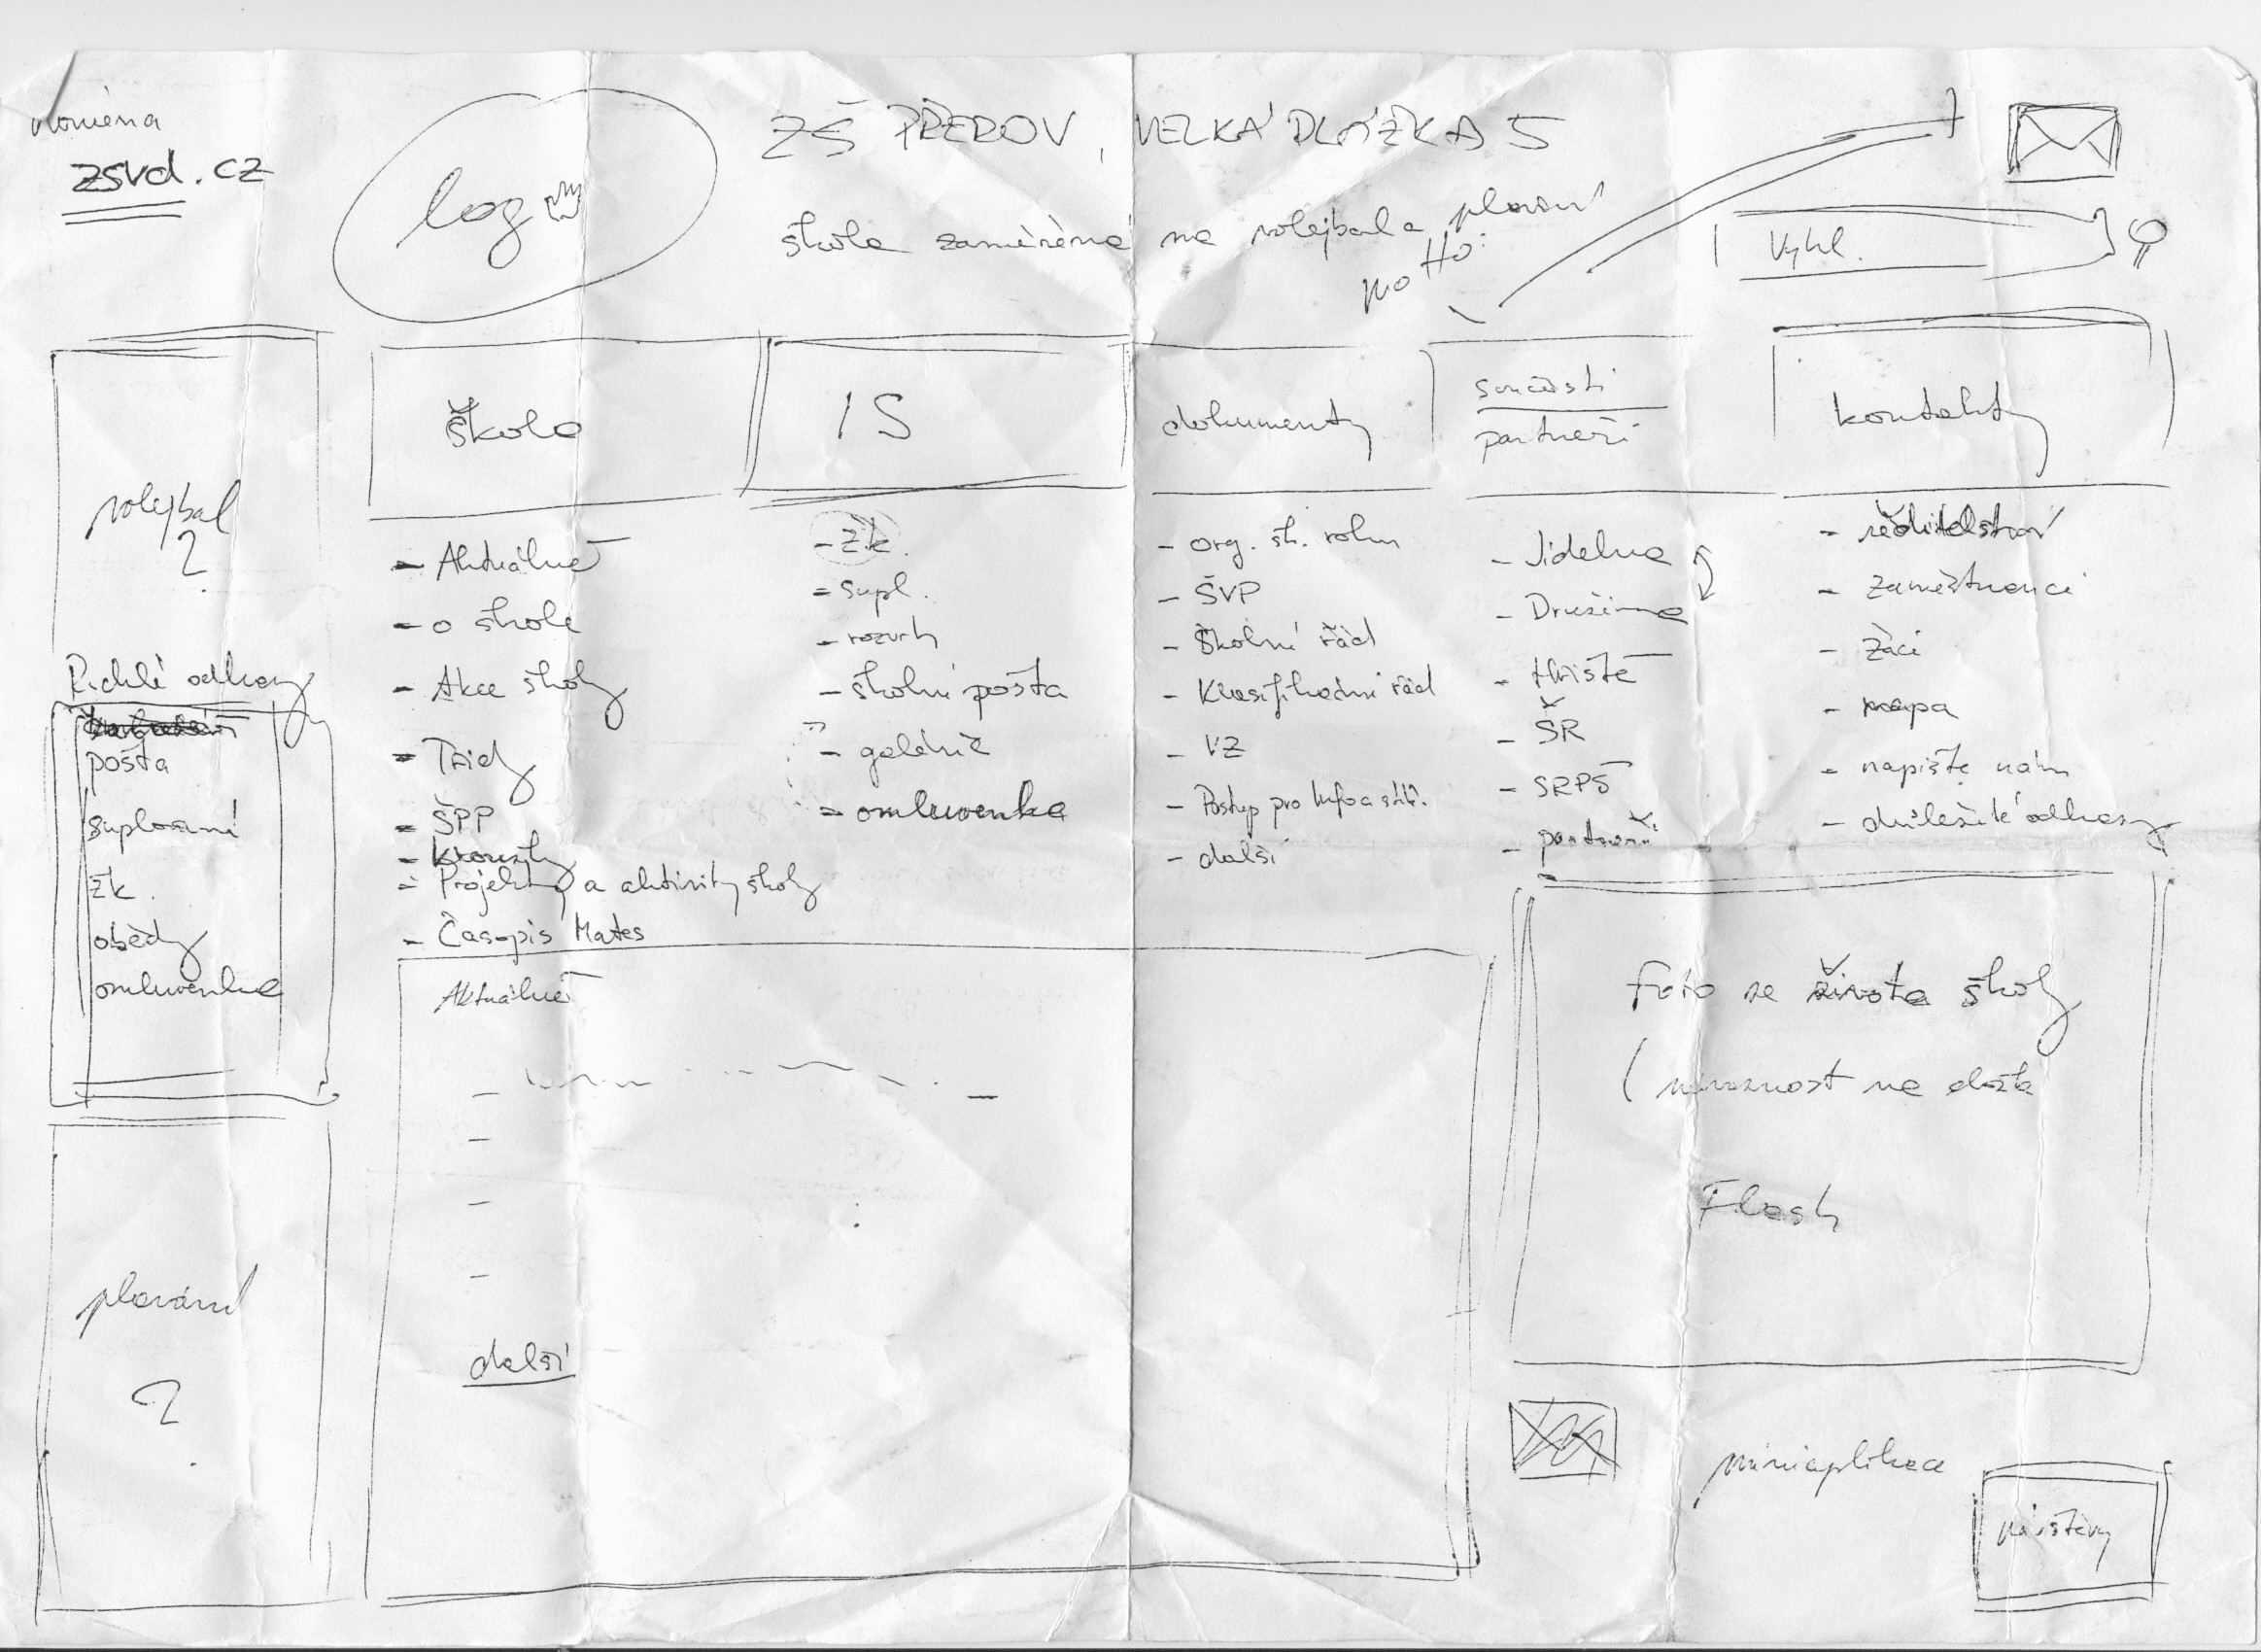 doména
zsvd.cz
logo
ZŠ PŘEROV, VELKÁ DLÁŽKA 5
škola zaměřená na volejbal a plavání
motto:
Vyhl.
volejbal
?
škola
IS
dokumenty
součásti
partneři
kontakty
- Aktuálně
- o škole
- Akce školy
- Třídy
- ŠPP
- Kroužky
- Projekty a aktivity školy
- Časopis Mates
- žk.
- supl.
- rozvrh
- školní pošta
- galerie
- omluvenka
- org. šk. roku
- ŠVP
- Školní řád
- Klasifikační řád
- VZ
- Postup pro Info a stíž.
- další
- Jídelna
- Družina
- Hřiště
- ŠR
- SRPŠ
- partneři
- ředitelství
- zaměstnanci
- žáci
- mapa
- napište nám
- důležité odkazy
Richlé odkazy
pošta
suplování
žk.
obědy
omluvenka
plavání
?
Aktuálně
další
Foto ze života školy
(návaznost na
Flash
miniaplikace
návštěvy